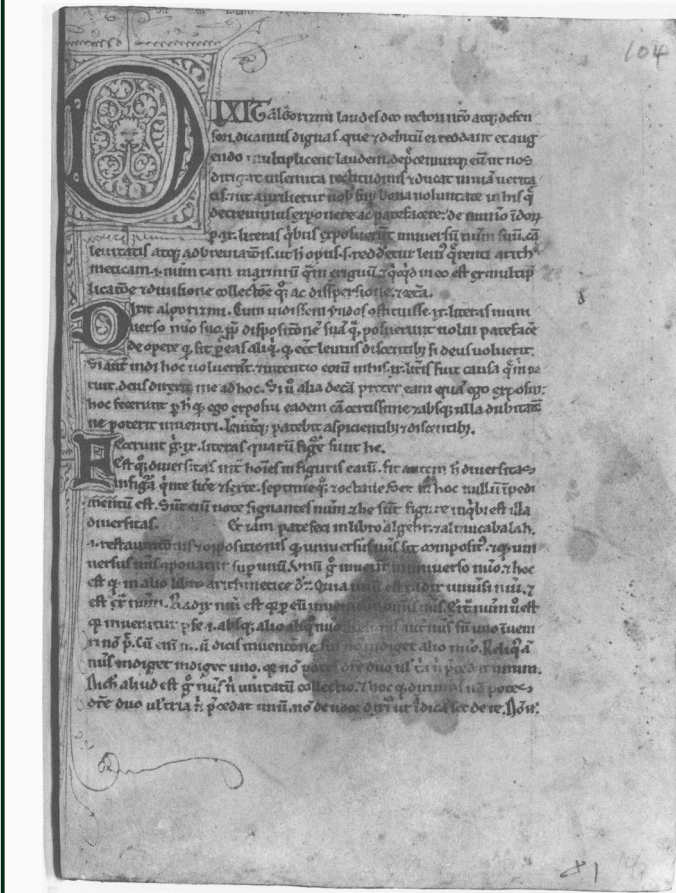 104
DIXIT algorizmi laudes deo rectori nrō atq; defen
sori dicamus dignas. que ⁊ debitū ei reddant et aug
endo multiplicent laudem. dep̄cemurq; eū ut nos
dirigat in semita rectitudinis ⁊ ducat in uiā uerita
tis. ⁊ut auxilietur nob̄ sup̄ bona uoluntate in his q̄
decreuimus exponere ac patefacere: de num̄o īdoꝝ
p .ıx. literas q̄bus exposuerūt uniuersū num̄ suū. cā
leuitatis atq; adbreuiatōis. ut h̄ opus .s. redderet leui⁹ q̄renti arith
meticam .i. num̄ tam maximū q̄m exiguū. ⁊ q̄cq̄d in eo est ex multip
licatōne ⁊ diuisione collectōe q̄q; ac disspersione. ⁊ cet̄a.
Dixit algorizmi. Cum uidissem yndos 9stituisse .ıx. literas in uni
uerso num̄o suo. ꝓp dispositōnē suā q̄ posuerunt uolui patefac̄e
de opere q; fit p̄ eas aliq̄. q; eēt leuius discentib; si deus uoluerit.
Si aūt indi hoc uoluer̄t. ⁊ intentio eoꝝ in his .ıx. līris fuit causa q̄ m̄ pa
tuit. deus direxit me ad hoc. Si ū alia decā preter eam quā ego exposui:
hoc fecerunt p̄ h̄ q; ego exposui eadem cā certissime ⁊ absq; ulla dubitatōe
ne poterit inueniri. leuiterq; patebit aspicientib; ⁊ discentib;.
Fecerunt g̊ .ıx. literas quarū fig̅e sunt he.
Est q̄q; diuersitas int̄ hoīes in figuris earū. fit autem h̄ diuersitas
in figura q̄nte līre ⁊ sexte. septimeq̄; ⁊ octaue. Set in hoc nullū īpedi
mentū est. Sūt enī note signantes num̄ ⁊ he sūt figure in q̄bȝ est illa
diuersitas. Et iam patefeci in libro algebr ⁊ almucabalah.
.i. restaurationis ⁊ oppositionis q; uniuersus nūs sit composit⁹. ⁊ q; uni
uersus nūs 9ponatur sup̄ unū. Vnū g̊ inuenit̄ in uniuerso num̄o. ⁊ hoc
est q; in alio libro arithmetice dr̄. Quia unū est radix uniūsi nūi. ⁊
est ex̄ num̄. Radix nūi est q; p̄ eū inuenitur omnis nūs. Ext̄ num̄ ū est
q; inuenitur p se .i. absq; alio aliq̊ nūo. Reliquus autem nūs sū uno īueni
ri nō p̄. Cū eni unū dicis inuentōne sui nō indiget alio nūo. Reliq⁹ aū
nūs indiget indiget uno. q̄ nō potes dr̄e duo ul' tria n̄ p̄cedat unum.
Nichil aliud est g̊ nūs n̄ unitatū collectio. ⁊ hoc q; diximus nō potes
dr̄e duo ul' tria n̄ p̄cedat unū. nō de uoce dixim⁹ ut īdicā set de re. Nō n̄.